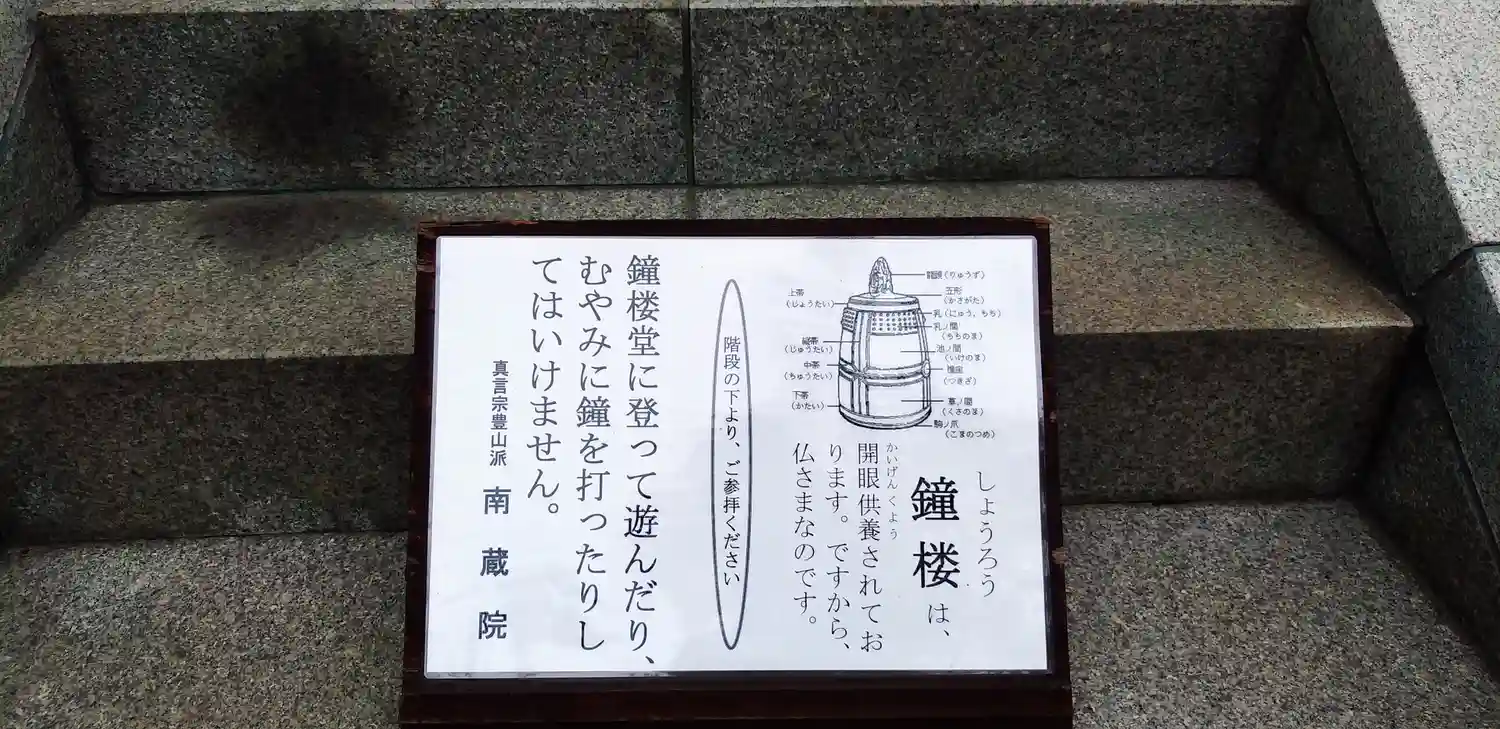 しょうろう
鐘楼は、
かいげんくよう
開眼供養されてお
ります。ですから、
仏さまなのです。
龍頭(りゅうず)
(かさがた)
乳(にゅう、ちち)
乳ノ間
(ちちのま)
池ノ間
(いけのま)
撞座
(つきざ)
草ノ間
(くさのま)
駒ノ爪
(こまのつめ)
上帯
(じょうたい)
縦帯
(じゅうたい)
中帯
(ちゅうたい)
下帯
(かたい)
階段の下より、ご参拝ください
鐘楼堂に登って遊んだり、
むやみに鐘を打ったりし
てはいけません。
真言宗豊山派 南蔵院